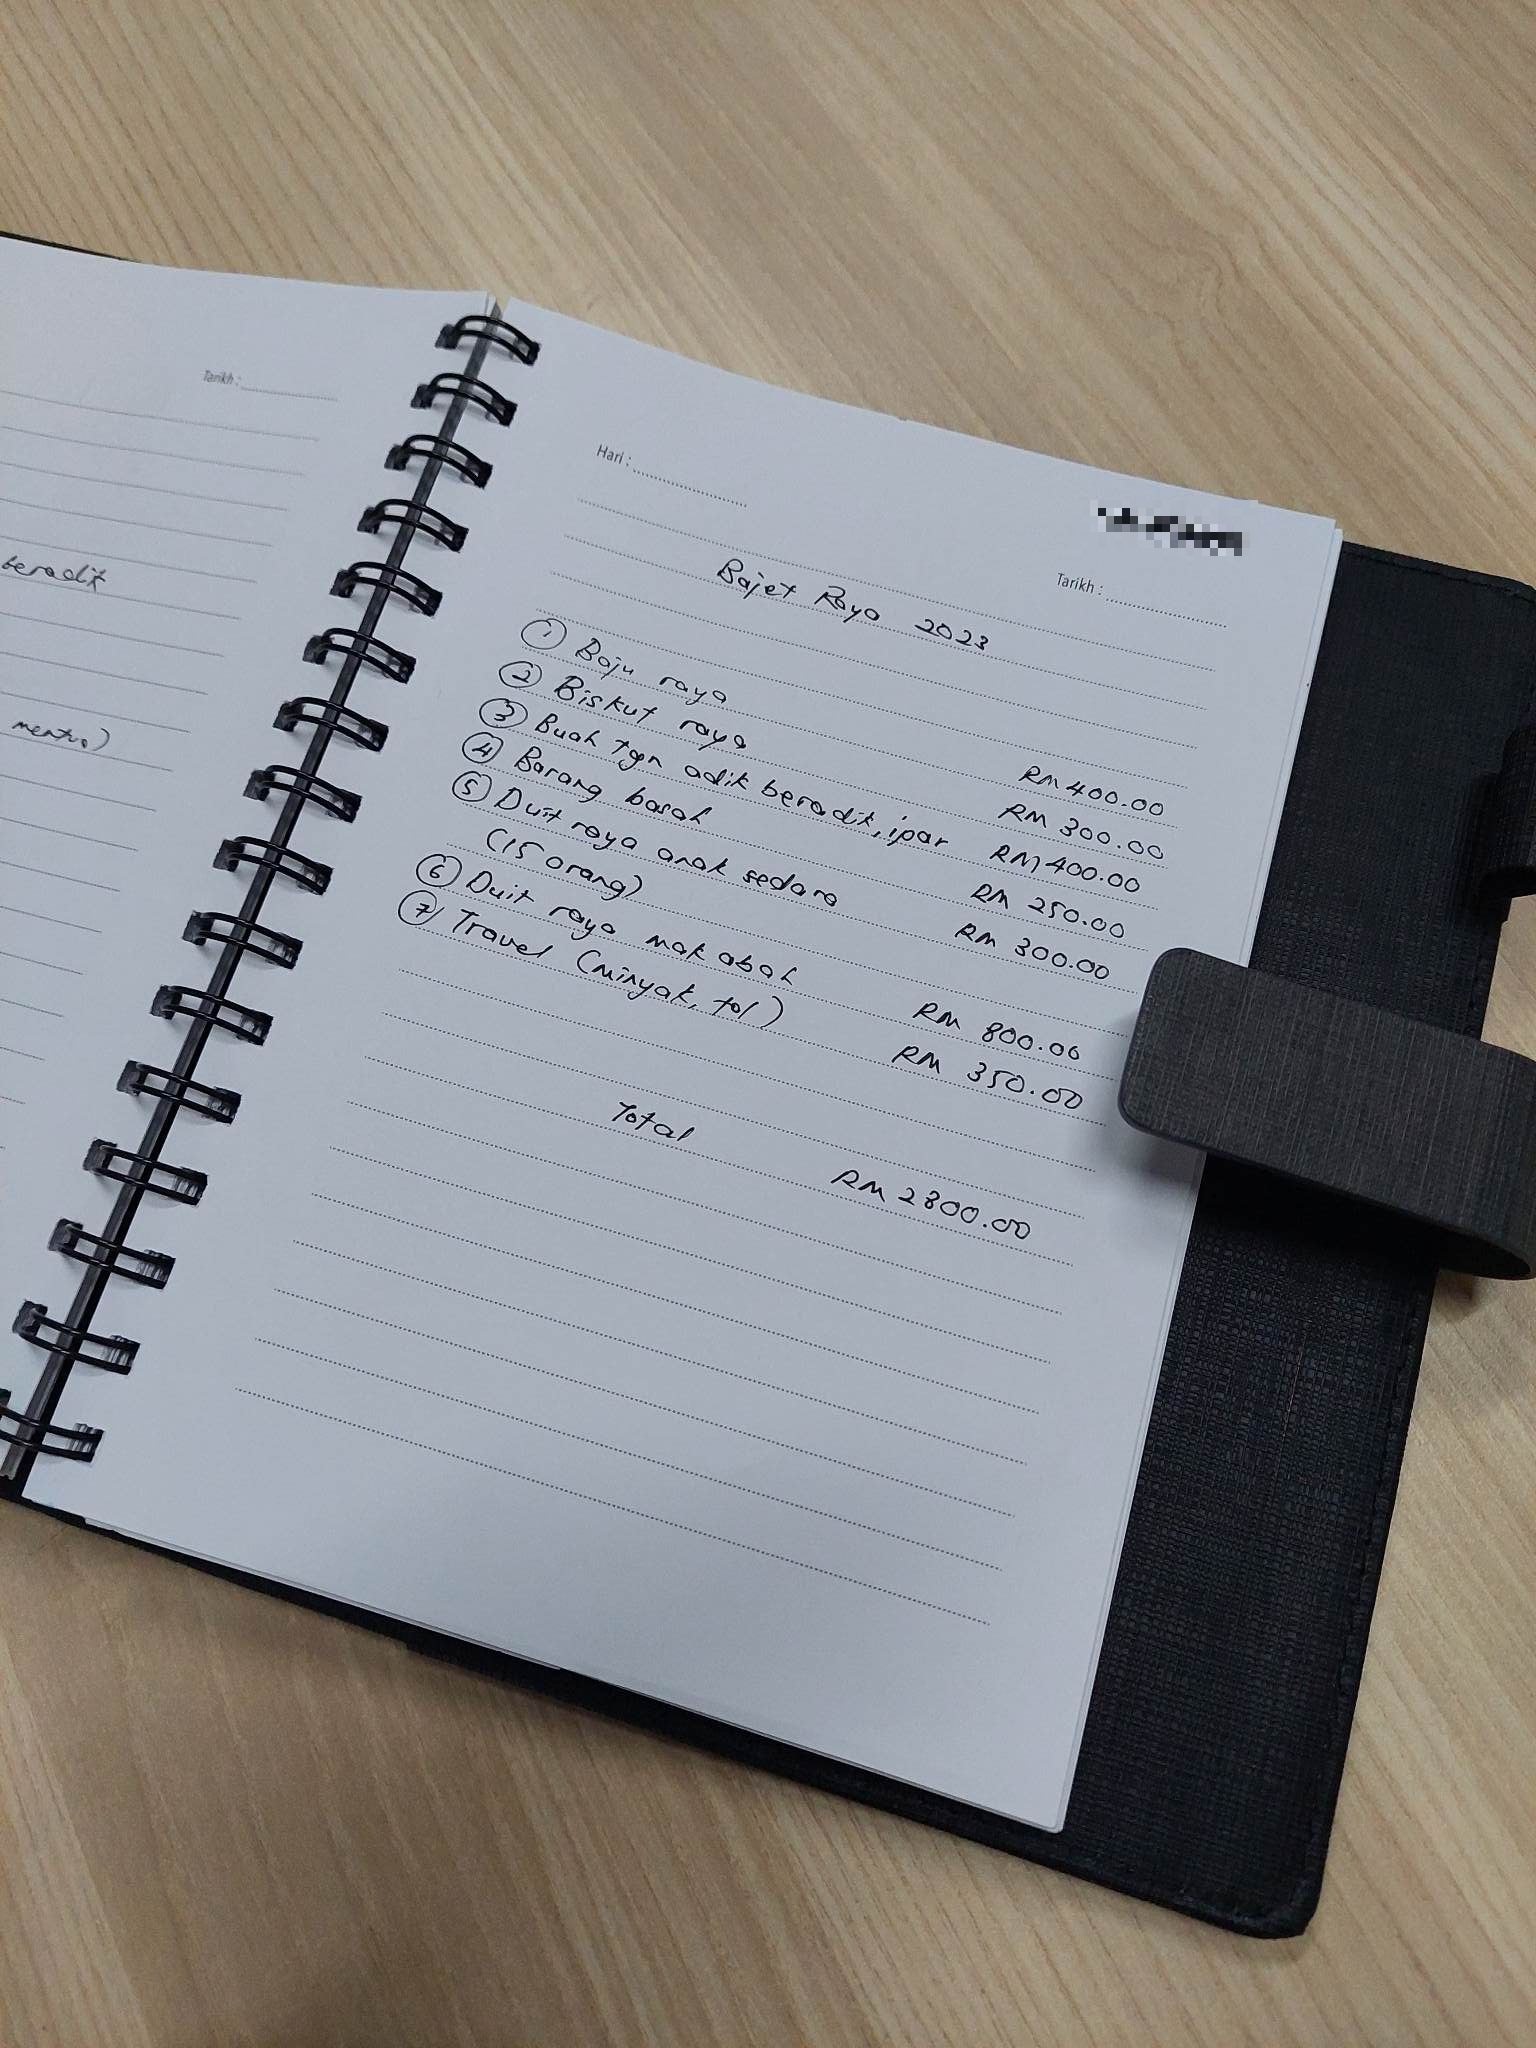 Tarikh :
beradik
mentua)
Hari :
Tarikh :
Bajet Raya 2023
1 Baju raya RM 400.00
2 Biskut raya RM 300.00
3 Buah tgn adik beradik, ipar RM 400.00
4 Barang basah RM 250.00
5 Duit raya anak sedara RM 300.00
(15 orang)
6 Duit raya mak abah RM 800.00
7 Travel (minyak, tol) RM 350.00
Total RM 2800.00